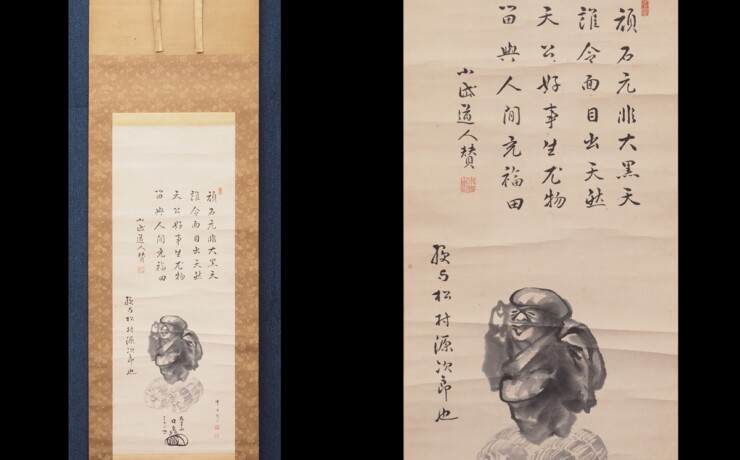 頑石元非大黒天
誰令面目出天然
天公好事生尤物
留與人間充福田
道人賛
松村源次郎也